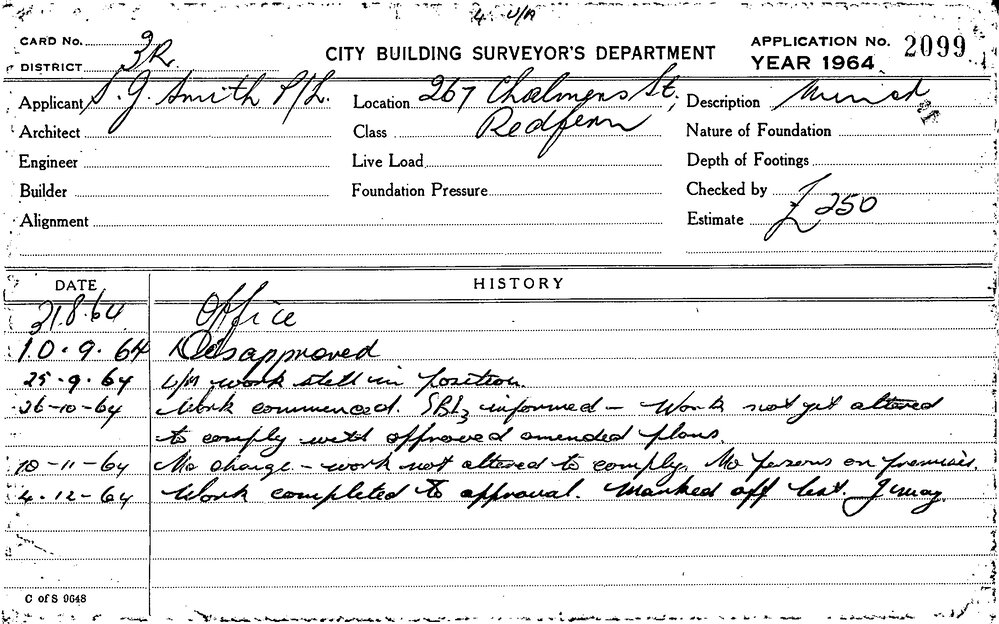 4 U/A
CARD No.
DISTRICT 3R
CITY BUILDING SURVEYOR'S DEPARTMENT
APPLICATION No. 2099
YEAR 1964
Applicant S. G. Smith P/L.
Location 267 Chalmers St,
Redfern
Description
Architect
Class
Nature of Foundation
Engineer
Live Load
Depth of Footings
Builder
Foundation Pressure
Checked by
Alignment
Estimate £250
DATE
HISTORY
31.8.64 Office
10.9.64 Disapproved
25.9.64 work still in position.
26-10-64 Work commenced. informed - Work not yet altered
to comply with approved amended plans.
10-11-64 No change - work not altered to comply. No persons on premises.
4.12-64 Work completed to approval. Marked off list.
C of S 9648